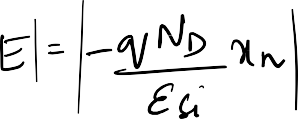 E| = |-qN_D/ε_si x_n|